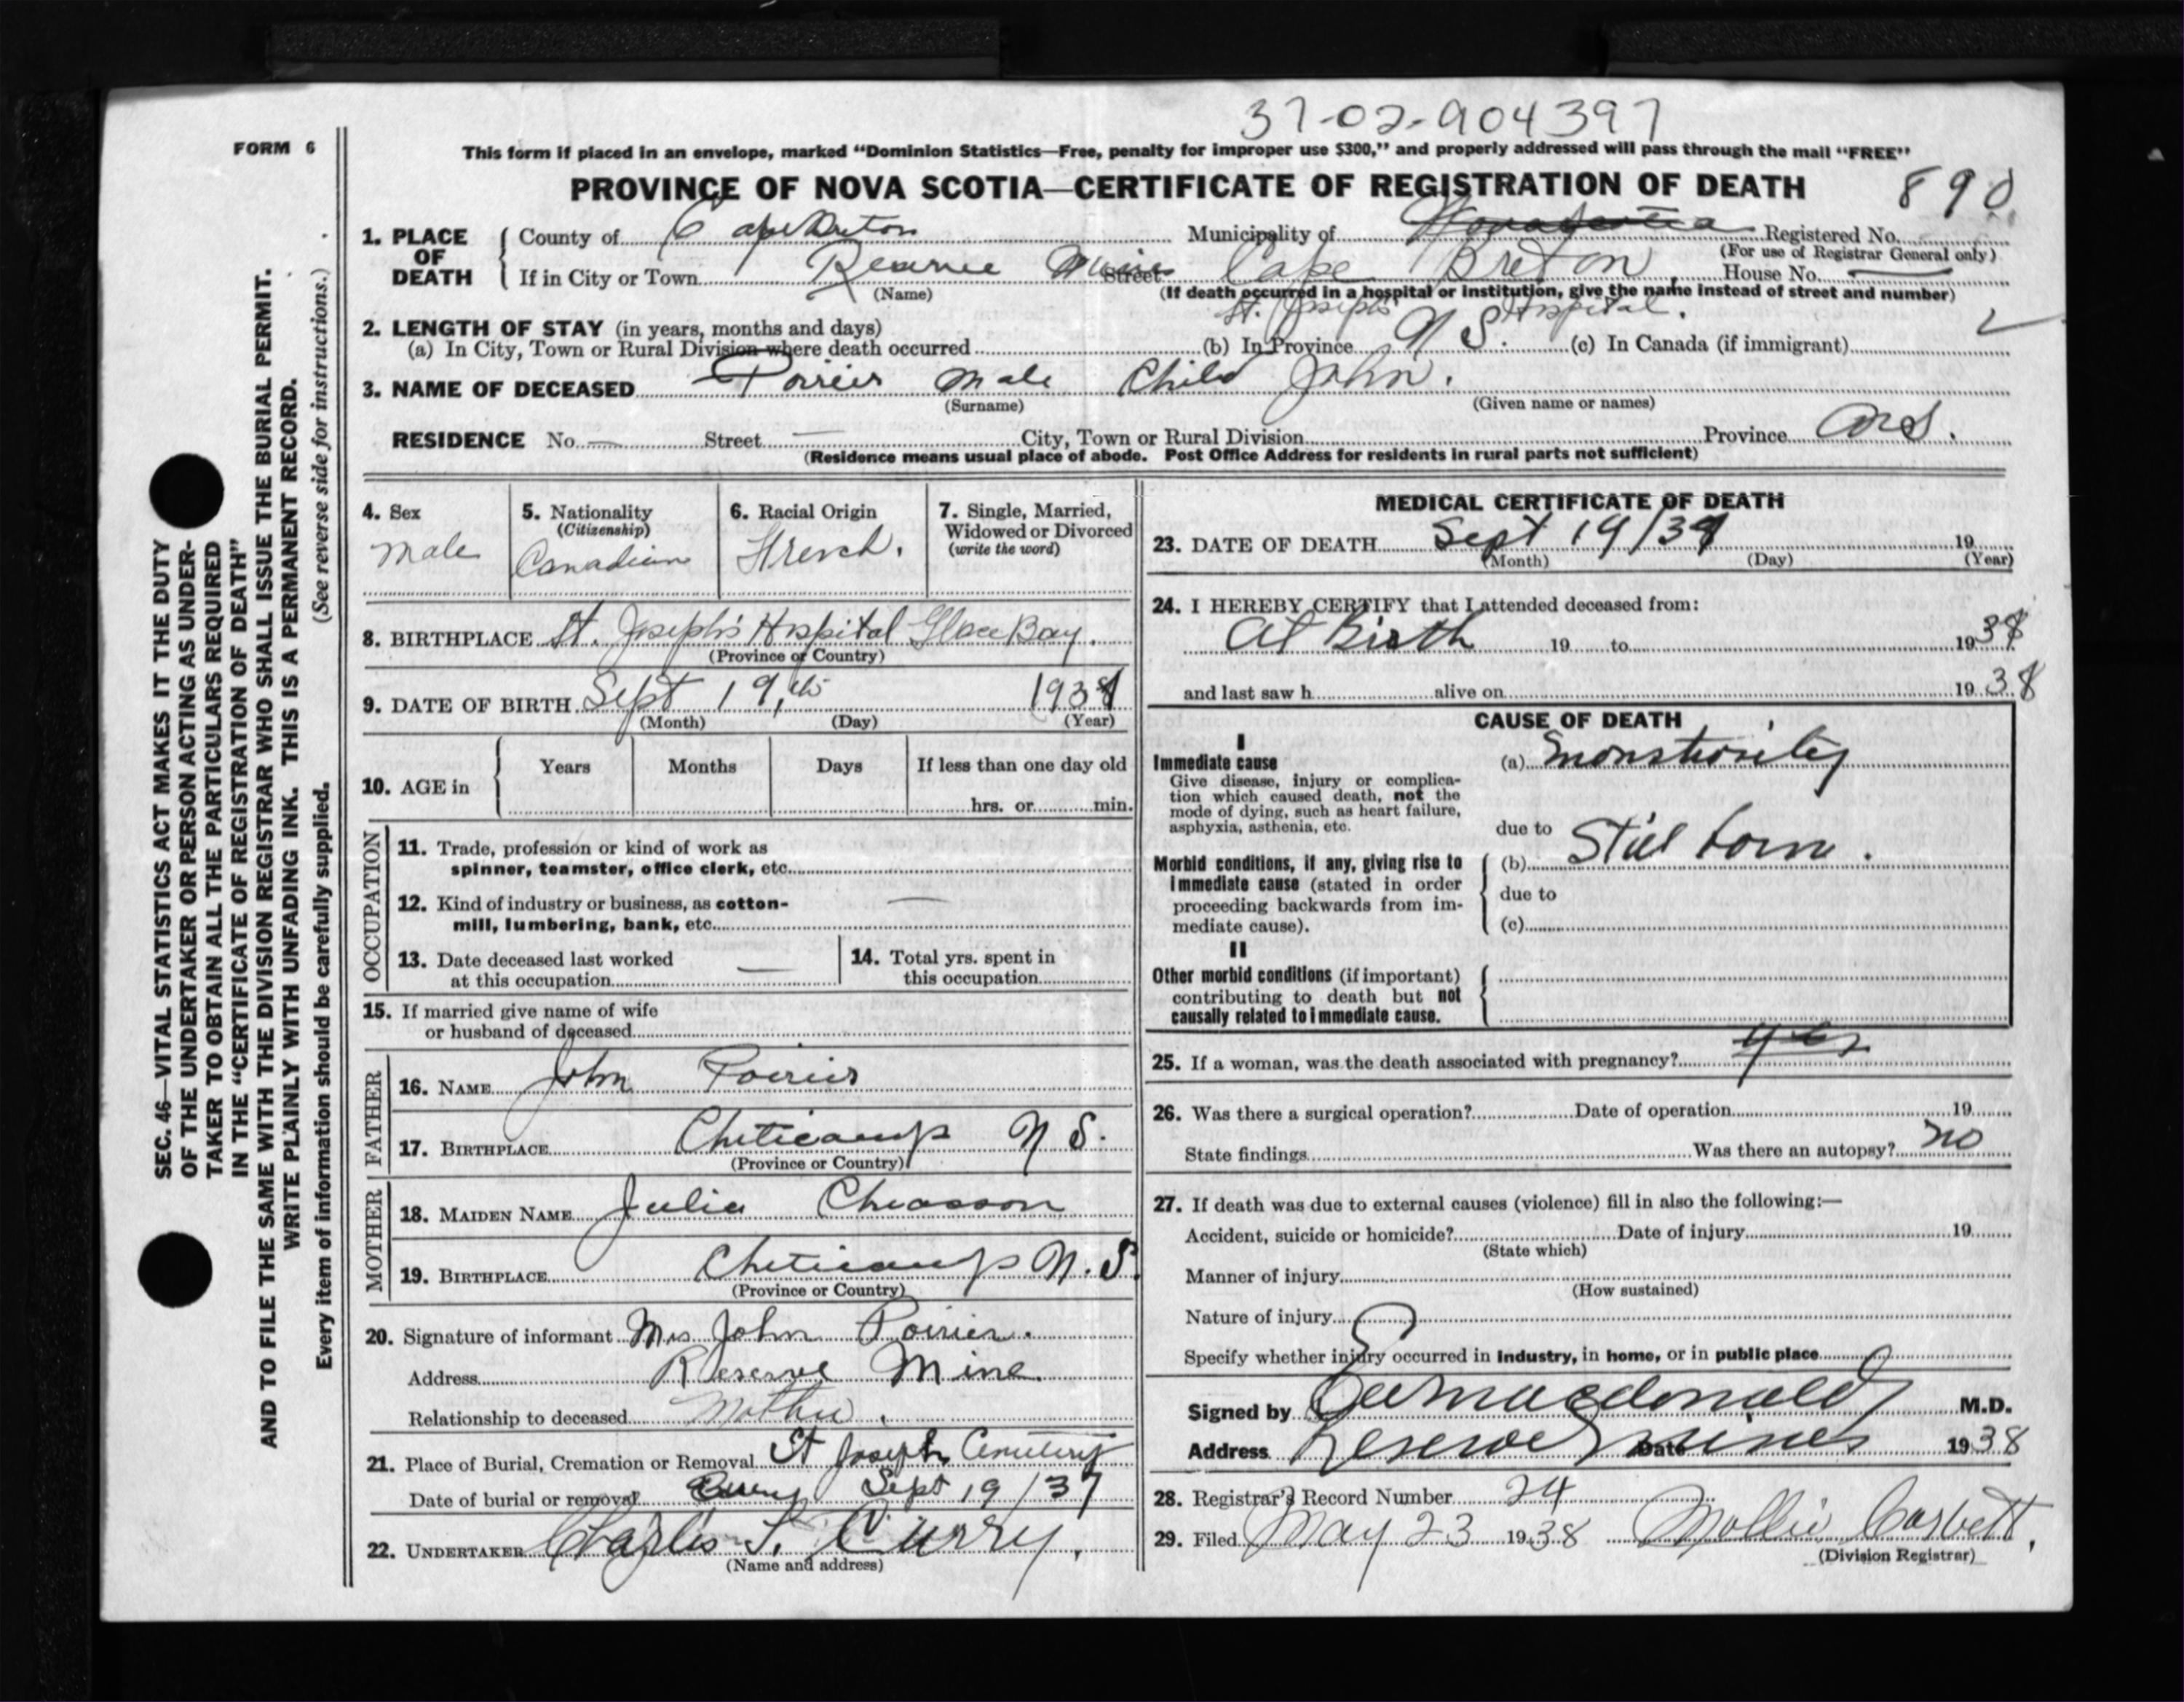 37-02-904397
FORM 6
This form if placed in an envelope, marked "Dominion Statistics—Free, penalty for improper use $300," and properly addressed will pass through the mail "FREE"
PROVINCE OF NOVA SCOTIA—CERTIFICATE OF REGISTRATION OF DEATH 890
SEC. 46—VITAL STATISTICS ACT MAKES IT THE DUTY
OF THE UNDERTAKER OR PERSON ACTING AS UNDER-
TAKER TO OBTAIN ALL THE PARTICULARS REQUIRED
IN THE "CERTIFICATE OF REGISTRATION OF DEATH"
AND TO FILE THE SAME WITH THE DIVISION REGISTRAR WHO SHALL ISSUE THE BURIAL PERMIT.
WRITE PLAINLY WITH UNFADING INK. THIS IS A PERMANENT RECORD.
Every item of information should be carefully supplied. (See reverse side for instructions.)
1. PLACE OF DEATH
County of Cape Breton Municipality of Nova Scotia Registered No.
(For use of Registrar General only)
If in City or Town Reserve Mines Street Cape Breton, House No. —
(Name) (If death occurred in a hospital or institution, give the name instead of street and number)
St. Joseph's Hospital.
2. LENGTH OF STAY (in years, months and days)
(a) In City, Town or Rural Division where death occurred (b) In Province N S. (c) In Canada (if immigrant)
3. NAME OF DECEASED Poirier Male Child John.
(Surname) (Given name or names)
RESIDENCE No. — Street — City, Town or Rural Division Province N.S.
(Residence means usual place of abode. Post Office Address for residents in rural parts not sufficient)
4. Sex
Male
5. Nationality
(Citizenship)
Canadian
6. Racial Origin
French.
7. Single, Married,
Widowed or Divorced
(write the word)
8. BIRTHPLACE St. Joseph's Hospital Glace Bay.
(Province or Country)
9. DATE OF BIRTH Sept 19, th 193
(Month) (Day) (Year)
10. AGE in
Years Months Days If less than one day old
hrs. or min.
OCCUPATION
11. Trade, profession or kind of work as
spinner, teamster, office clerk, etc.
12. Kind of industry or business, as cotton-
mill, lumbering, bank, etc. —
13. Date deceased last worked
at this occupation —
14. Total yrs. spent in
this occupation
15. If married give name of wife
or husband of deceased
FATHER
16. NAME John Poirier
17. BIRTHPLACE Cheticamp N S.
(Province or Country)
MOTHER
18. MAIDEN NAME Julia Chiasson
19. BIRTHPLACE Cheticamp N. S.
(Province or Country)
20. Signature of informant Mrs John Poirier.
Address Reserve Mine.
Relationship to deceased Mother.
21. Place of Burial, Cremation or Removal St Joseph Cemetery
Date of burial or removal Sept 19/37
22. UNDERTAKER Charlis S. Curry.
(Name and address)
MEDICAL CERTIFICATE OF DEATH
23. DATE OF DEATH Sept 19/3 19
(Month) (Day) (Year)
24. I HEREBY CERTIFY that I attended deceased from:
At Birth 19 to 1938
and last saw h alive on 1938
CAUSE OF DEATH
I
Immediate cause
Give disease, injury or complica-
tion which caused death, not the
mode of dying, such as heart failure,
asphyxia, asthenia, etc.
(a) Monstrosity
due to
Morbid conditions, if any, giving rise to
immediate cause (stated in order
proceeding backwards from im-
mediate cause).
(b) Still born.
due to
(c)
II
Other morbid conditions (if important)
contributing to death but not
causally related to immediate cause.
25. If a woman, was the death associated with pregnancy? yes
26. Was there a surgical operation? Date of operation 19
State findings Was there an autopsy? no
27. If death was due to external causes (violence) fill in also the following:—
Accident, suicide or homicide? Date of injury 19
(State which)
Manner of injury
(How sustained)
Nature of injury
Specify whether injury occurred in industry, in home, or in public place
Signed by Macdonald M.D.
Address Reserve Mines Date 1938
28. Registrar's Record Number 24
29. Filed May 23 1938 Mollie Corbett,
(Division Registrar)